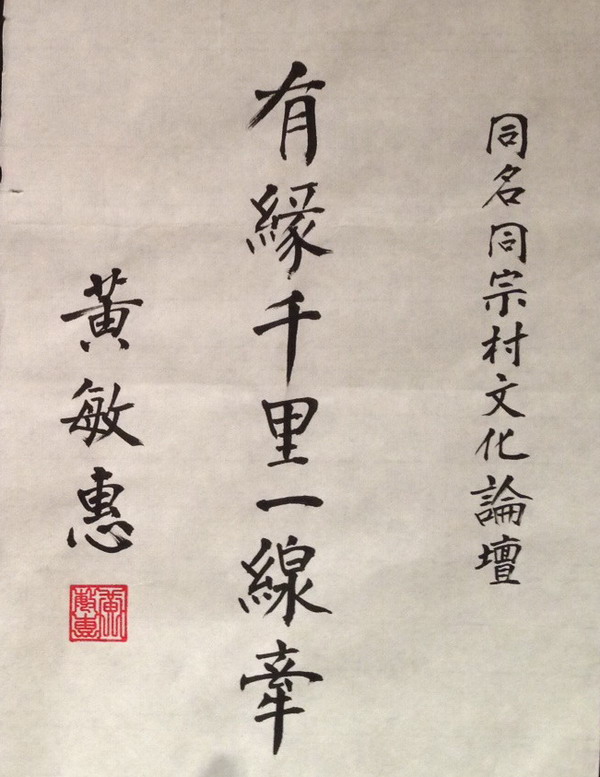 同名同宗村文化論壇
有緣千里一線牽
黃敏惠
黃敏惠